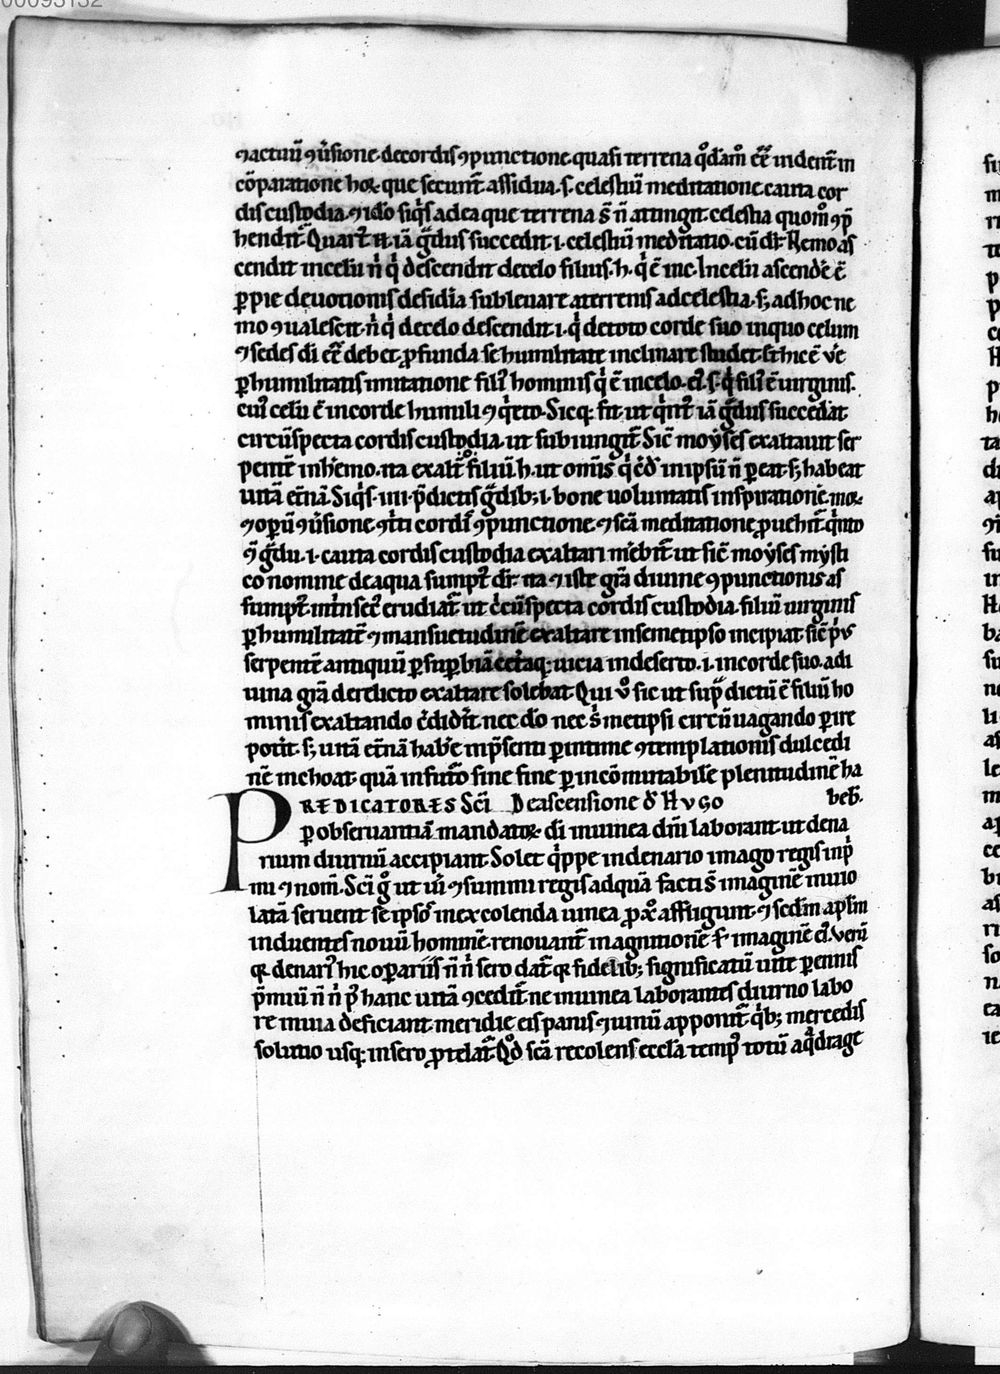 ⁊ actuū ꝯv̄sione. de cordis ꝯpunctione. quasi terrena qͦdāmͦ eē uident̄ in
cōparatione hoꝝ que secunt̄. assidua .s. celestiū meditatione. cauta cor
dis custodia. ⁊ ido si q̇s ad ea que terrena s̄ n̄ attingit. celestia quomͦ ꝯp̄
hendit̄. Quart̄ iā g̊dus succedit .i. celestiū meditatio. cū dr̄. Nemo as
cendit in celū n̄ q̇ descendit de celo filius .h. q̇ ē in c. In celū ascendē ē
ꝓpie deuotionis desidia subleuare a terrenis ad celestia. sꝫ ad hoc ne
mo ꝯualescit. n̄ q̇ de celo descendit .i. q̇ de toto corde suo in quo celum
⁊ sedes di eē debet. ꝓfunda se humilitate inclinare studet. et hic ē
ꝑ humilitatis imitatione fili hominis q̇ ē in celo. .s. q̇ fili ē uirginis.
cui celū ē in corde humili ⁊ q̇eto. Sicqꝫ fit ut q̇nt iā g̊dus succedat
circūspecta cordis custodia. ut subiungit̄. Sic̄ moẏses exaltauit ser
pentē in h̄emo. ita exalt filiū h. ut omīs q̇ c̄d in ip̄sū n̄ ꝑeat. sꝫ habeat
uitā et̄nā. Si q̇s .iiii. p̄dictis g̊dibꝫ .i. bone uoluntatis inspiratione. moꝝ
⁊ oꝑū ꝯv̄sione. cordis ꝯpunctione. ⁊ sc̄a meditatione ꝓuehit̄. q̇nto
g̊du .i. cauta cordis custodia exaltari m̄ebit̄. ut sic̄ moẏses mẏsti
co nomine de aqua sumpt dr̄. ita ⁊ iste gr̄a diuine ꝯpunctionis as
sumpt int̄nsec erudiat̄. ut c̄cūspecta cordis custodia. filiū uirginis
ꝑ humilitatē ⁊ mansuetudinē exaltare in semetipso incipiat. sic̄ p̄us
serpentē antiquū ꝑ suꝑbiā cet̄aqꝫ uicia in deserto .i. in corde suo. a di
uina gr̄a derelicto exaltare solebat. Qui vͦ sic ut sup̄ dictū ē filiū ho
minis exaltando c̄didit̄. nec dō nec s̄ metipsi circū uagando ꝑire
potit. sꝫ uitā et̄nā hab̄e in p̄senti ꝑ intime ꝯtemplationis dulcedi
nē inchoat. quā in futo sine fine ꝑ incōmutabile plenitudinē ha
beb.
PREDICATORES Sci De ascensione d̄ Hugo
ꝑ obseruantiā mandatoꝝ di in uinea dn̄i laborant. ut dena
rium diurnū accipiant. Solet q̇ppe in denario imago regis inp̄
mi ⁊ nom̄. Sci g̊ ut ⁊ summi regis ad quā facti s̄ imaginē inuio
latā seruent se ipsos in excolenda uinea ꝓ xͦ affligunt. ⁊ scd̄m aplm
induentes nouū hominē. renouant̄ in agnitionē imaginē ei. verū
denari hic oꝑariis n̄ n̄ sero dat̄. fidelibꝫ significatū uite ꝑennis
p̄miū n̄ n̄ p̄ hanc uitā ꝯcedit̄. ne in uinea laborantes diurno labo
re in uia deficiant. meridie eis panis ⁊ uinū apponit̄. q̇bꝫ mercedis
solutio usqꝫ in sero ꝓtelat̄. Qͦd sc̄a recolens eccla temp totū a qͣdrage